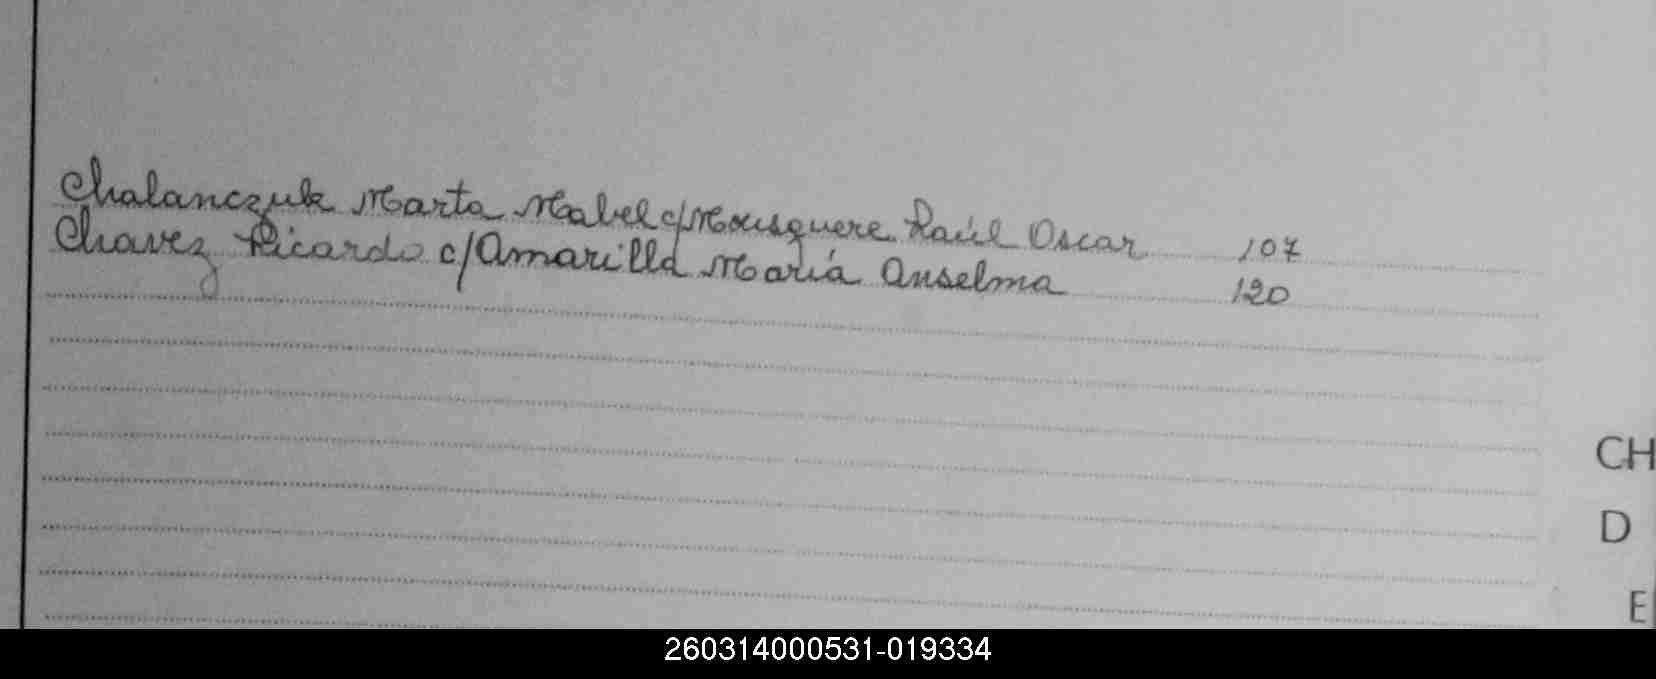 Chalanczuk Marta Mabel c/Mousquere Raúl Oscar 107
Chavez Ricardo c/Amarilla María Anselma 120
CH
D
E
260314000531-019334